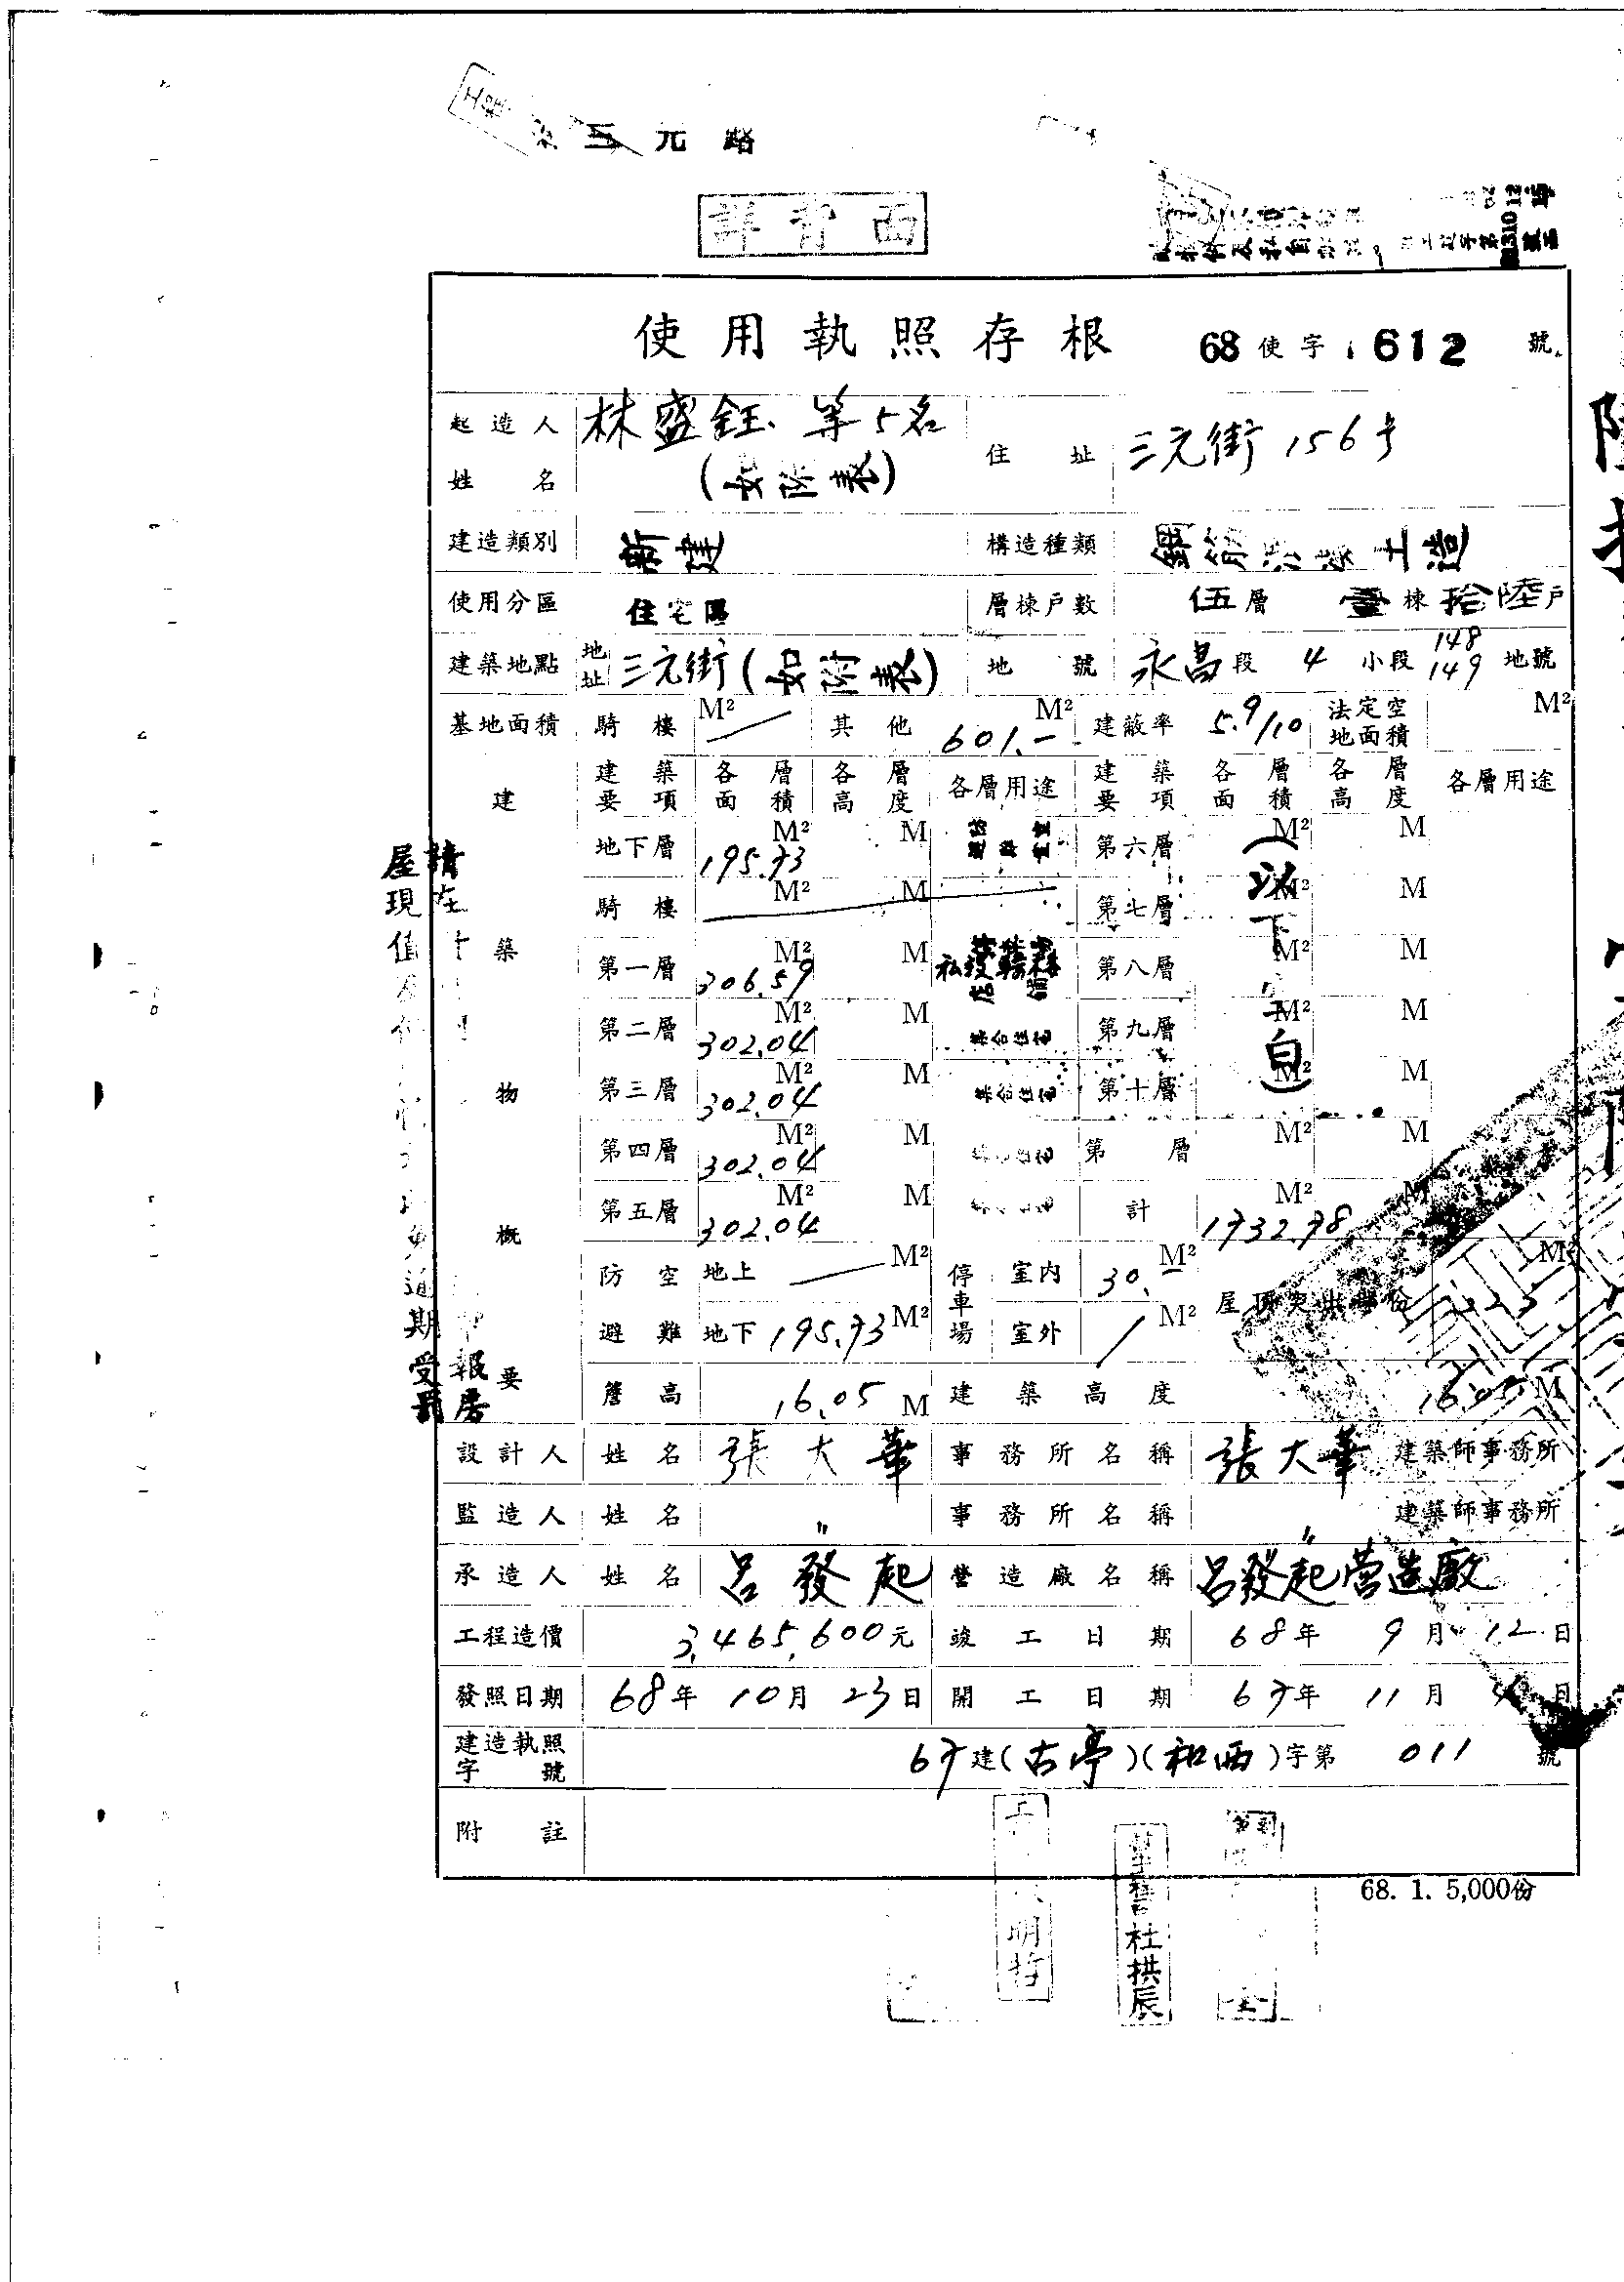 三元路
詳背面
使用執照存根 68使字 612 號
起造人姓名 林盛鈺等5名(如附表) 住址 三元街156号
建造類別 新建 構造種類 鋼筋混凝土造
使用分區 住宅區 層棟戶數 伍層 壹棟 拾陸戶
建築地點 地址 三元街(如附表) 地號 永昌段 4 小段 148 149 地號
基地面積 騎樓 M² 其他 601.- M² 建蔽率 5.9/10 法定空地面積 M²
建築物概要
建築要項 各層面積 各層高度 各層用途 建築要項 各層面積 各層高度 各層用途
地下層 195.73 M² M 第六層 M² M
騎樓 M² M 第七層 M² M
第一層 306.59 M² M 店舖 第八層 M² M
第二層 302.04 M² M 集合住宅 第九層 M² M
第三層 302.04 M² M 集合住宅 第十層 M² M
第四層 302.04 M² M 第 層 M² M
第五層 302.04 M² M 計 1732.78 M² M
(以下空白)
防空避難 地上 M² 停車場 室內 30.- M² 屋頂突出部份 M²
地下 195.73 M² 室外 M²
簷高 16.05 M 建築高度 16.05 M
設計人 姓名 張大華 事務所名稱 張大華 建築師事務所
監造人 姓名 〃 事務所名稱 〃 建築師事務所
承造人 姓名 呂發起 營造廠名稱 呂發起营造廠
工程造價 3,465,600元 竣工日期 68年 9月 12日
發照日期 68年 10月 23日 開工日期 67年 11月 日
建造執照字號 67建(古亭)(和西)字第 011 號
附註
68. 1. 5,000份
杜拱辰